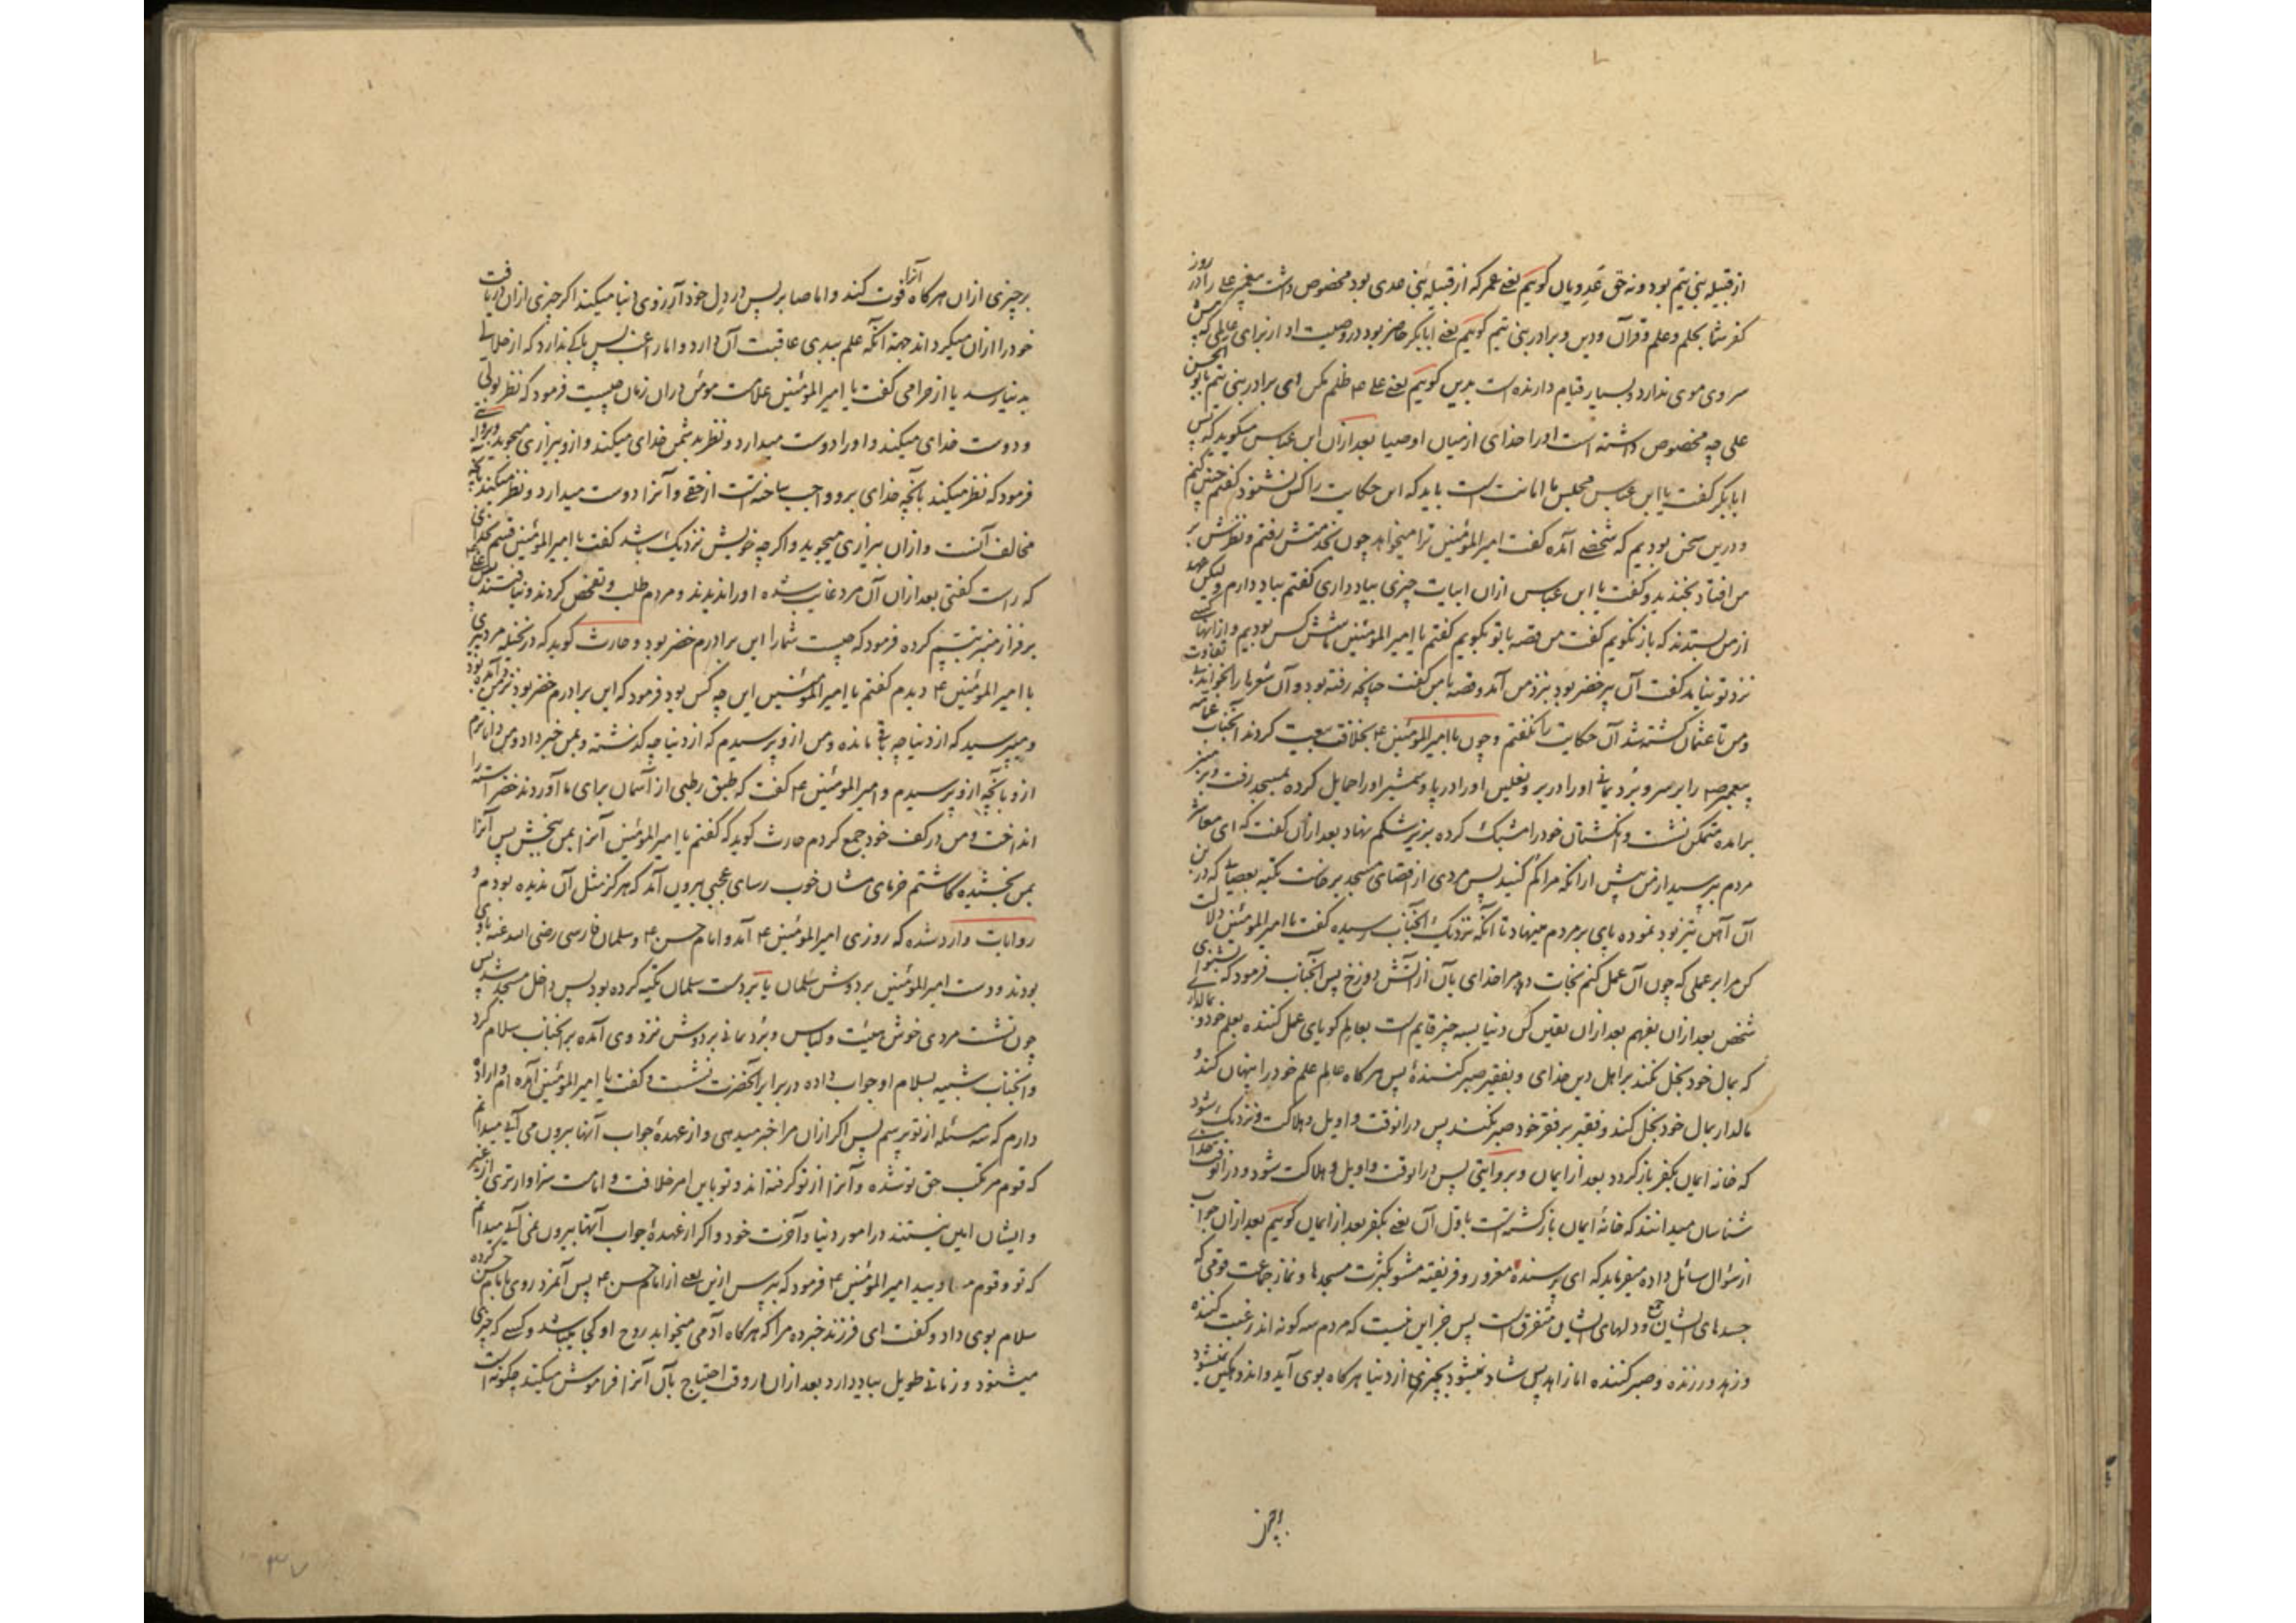 از قبیله بنی تیم بود و نه حق عدویان کوییم یعنی عمر که از قبیله بنی عدی بود مخصوص داشت پیغمبر علی را در روز
کفر شما بحلم و علم و قرآن و دین و برادر بنی تیم کوییم یعنی ابابکر حاضر بود در وصیت او از برای عالمی که پس
سر وی موی ندارد و بسیار قیام دارنده است بدین کوییم یعنی علی ۴ ظلم مکن ای برادر بنی تیم بابو الحسن
علی چه مخصوص داشته است او را خدای از میان اوصیا بعد از آن ابن عباس میکوید که پس
ابابکر کفت یا ابن عباس مجلس ما امانت است باید که این حکایت را کس نشنود کفتم چنین کنم
و درین سخن بودیم که شخصی آمده کفت امیرالمؤمنین ترا میخواهد چون بخدمتش رفتم و نظرش بر
من افتاد بخندید و کفت یا ابن عباس از آن ابیات چیزی بیاد داری کفتم بیاد دارم و لیکن عهد
از من بستدند که باز نکویم کفت من قصه با تو بکویم کفتم یا امیرالمؤمنین ما شش کس بودیم و از اینها کسی
نزد تو نیامد کفت آن پیر خضر بود نزد من آمد و قصه با من کفت چنانچه رفته بود و آن شعرها را بخواند بی تفاوت
و من تا عثمان کشته شد آن حکایت را نکفتم و چون با امیرالمؤمنین ۴ بخلافت بیعت کردند آنجناب عمامه
پیغمبر ص را بر سر و برد یمانی او را در بر و نعلین او را در پا و شمشیر او را حمایل کرده بمسجد رفت و بر منبر
بر آمده متمکن نشست و انکشتان خود را مشبک کرده بزیر شکم نهاد بعد از آن کفت که ای معاشر
مردم بپرسید از من پیش از آنکه مرا کم کنید پس مردی از اقصای مسجد برخاست تکیه بعصایی که در بن
آن آهن تیز بود نموده پای بر مردم مینهاد تا آنکه نزدیک آنجناب رسیده کفت یا امیرالمؤمنین دلالت
کن مرا بر عملی که چون آن عمل کنم نجات دهد مرا خدای بآن از آتش دوزخ پس آنجناب فرمود که بشنو ای
شخص بعد از آن بفهم بعد از آن یقین کن دنیا بسه چیز قایم است بعالم کویای عمل کننده بعلم خود و بمالداری
که بمال خود بخل نکند بر اهل دین خدای و بفقیر صبر کننده پس هرکاه عالم علم خود را پنهان کند و
مالدار بمال خود بخل کند و فقیر بر فقر خود صبر نکند پس در آنوقت واویل و هلاکت و نزدیک شود
که خانه ایمان بکفر باز کردد بعد از ایمان و بروایتی پس در آنوقت واویل و هلاکت شود و در آنوقت خدا
شناسان میدانند که خانه ایمان باز کشته است باول آن یعنی بکفر بعد از ایمان کوییم بعد از آن جواب
از سؤال سائل داده میفرماید که ای پرسنده مغرور و فریفته مشو بکثرت مسجدها و نماز جماعت قومی که
جسدهای ایشان جمع و دلهای ایشان متفرق است پس جز این نیست که مردم سه کونه اند رغبت کننده
و زهد ورزنده و صبر کننده اما زاهد پس شاد نمیشود بچیزی از دنیا هرکاه بوی آید و اندوهکین نمیشود
بر چیزی از آن هرکاه آنرا فوت کند و اما صابر پس در دل خود آرزوی دنیا میکند اکر چیزی از آن دریافت
خود را از آن میکرداند جهت آنکه علم ببدی عاقبت آن دارد و اما راغب پس باکی ندارد که از حلالی
بدنیا رسد یا از حرامی کفت یا امیرالمؤمنین علامت مؤمن در آن زمان چیست فرمود که نظر بولی
و دوست خدای میکند و او را دوست میدارد و نظر بدشمن خدای میکند و از و بیزاری میجوید و بروایتی
فرمود که نظر میکند بآنچه خدای برو واجب ساخته است از حقی و آنرا دوست میدارد و نظر میکند بآنچه
مخالف آنست و از آن بیزاری میجوید و اکرچه خویش نزدیک باشد کفت یا امیرالمؤمنین قسم بخدای
که راست کفتی بعد از آن آن مرد غایب شده او را ندیدند و مردم طلب و تفحص کردند و نیافتند پس علی ۴
بر فراز منبر تبسم کرده فرمود که چیست شما را این برادرم خضر بود و حارث کوید که در نخله مرد پیری
با امیرالمؤمنین ۴ دیدم کفتم یا امیرالمؤمنین این چه کس بود فرمود که این برادرم خضر بود نزد من آمده بود
و میپرسید که از دنیا چه باقی مانده و من از و پرسیدم که از دنیا چه کذشته و بمن خبر داد و من داناترم
از و بآنچه از و پرسیدم و امیرالمؤمنین ۴ کفت که طبق رطبی از آسمان برای ما آوردند خضر استه را
انداخت و من در کف خود جمع کردم حارث کوید که کفتم یا امیرالمؤمنین آنرا بمن بخش پس آنرا
بمن بخشیده کاشتم خرمای مشان خوب رسای عجبی بیرون آمد که هرکز مثل آن ندیده بودم و
روایات وارد شده که روزی امیرالمؤمنین ۴ آمد و امام حسن ۴ و سلمان فارسی رضی الله عنه با وی
بودند و دست امیرالمؤمنین بر دوش سلمان یا بر دست سلمان تکیه کرده بود پس داخل مسجد شد پس
چون نشست مردی خوش هیئت و لباس و برد یمانی بر دوش نزد وی آمده بر آنجناب سلام کرد
و آنجناب شبیه بسلام او جواب داده در برابر آنحضرت نشست و کفت یا امیرالمؤمنین آمده ام و اراده
دارم که سه مسئله از تو بپرسم پس اکر از آن مرا خبر میدهی و از عهده جواب آنها بیرون می آیی میدانم
که قوم مرتکب حق تو شده و آنرا از تو کرفته اند و تو باین امر خلافت و امامت سزاوارتری از غیر
و ایشان امین نیستند در امور دنیا و آخرت خود و اکر از عهده جواب آنها بیرون نمی آیی میدانم
که تو و قوم امیرالمؤمنین ۴ فرمود که بپرس ازین یعنی از امام حسن ۴ پس آنمرد روی بامام حسن کرده
سلام بوی داد و کفت ای فرزند خبر ده مرا که هرکاه آدمی میخوابد روح او کجا میباشد و کسی که چیزی
میشنود و زمانی طویل بیاد دارد بعد از آن در وقت احتیاج بآن آنرا فراموش میکند چکونه است
۳۷